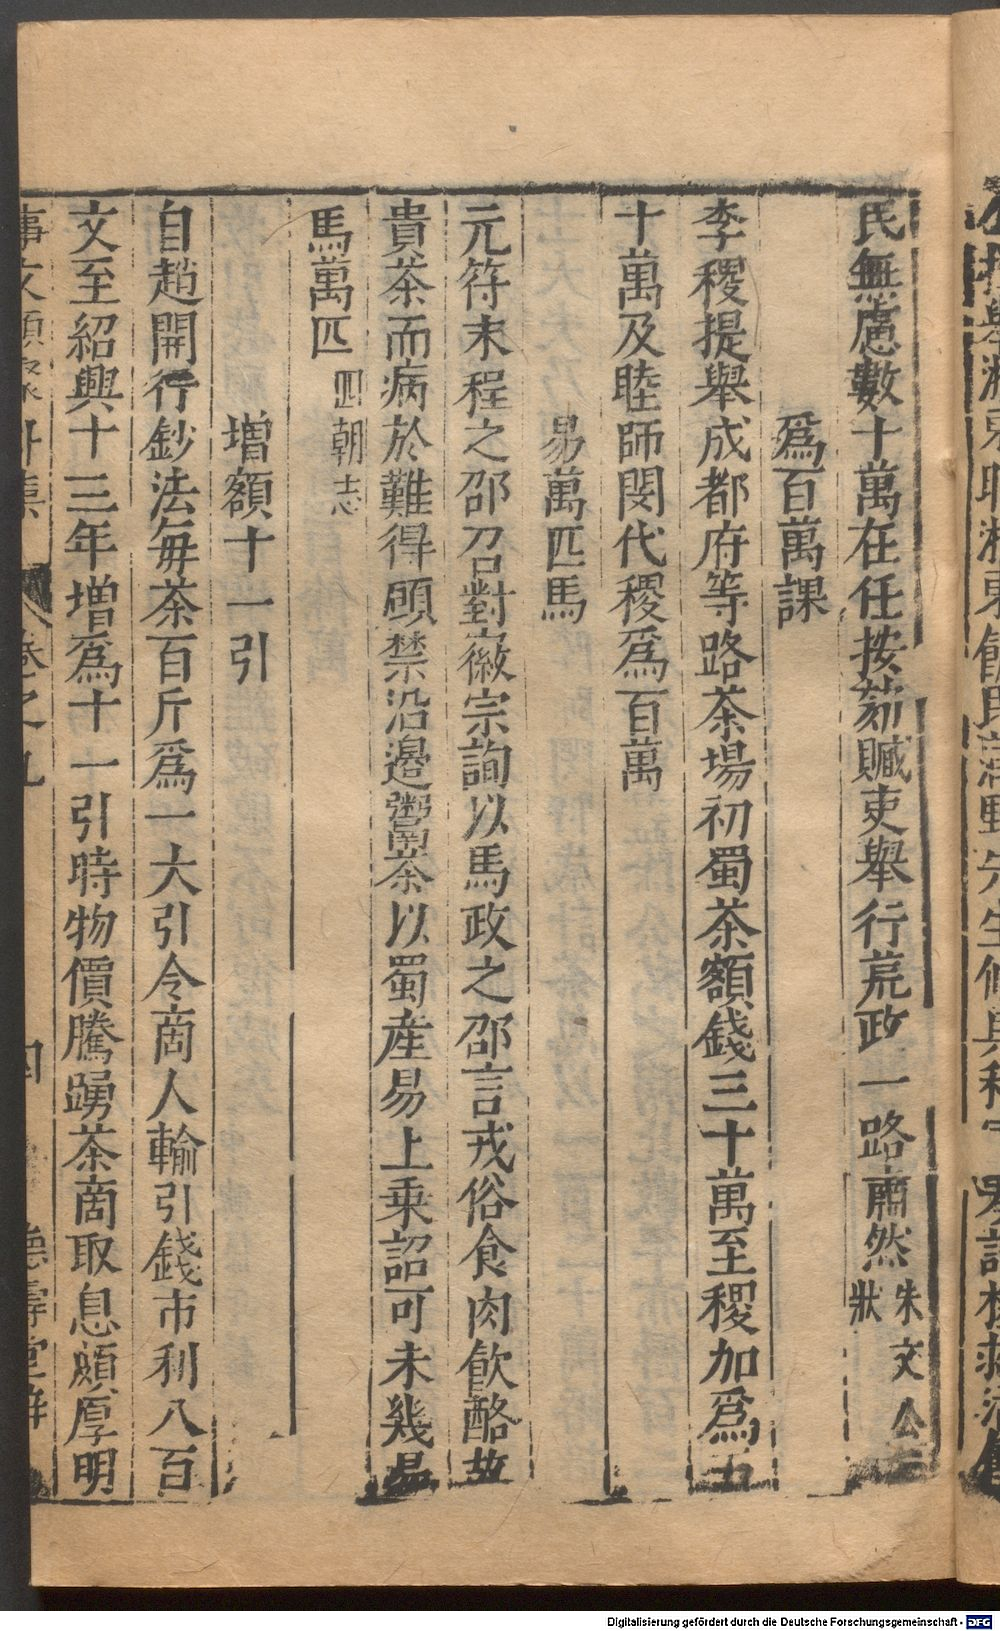 民無慮數十萬在任按劾贓吏舉行荒政一路肅然朱文公
狀
爲百萬課
李稷提舉成都府等路茶場初蜀茶額錢三十萬至稷加爲五
十萬及睦師閔代稷爲百萬
易萬匹馬
元符末程之邵召對徽宗詢以馬政之邵言戎俗食肉飲酪故
貴茶而病於難得頋禁沿邊鬻茶以蜀産易上乗詔可未幾易
馬萬匹四朝志
增額十一引
自趙開行鈔法毎茶百斤爲一大引令啇人輸引錢市利八百
文至紹興十三年增爲十一引時物價騰踴茶啇取息頗厚明
事文類聚 卷之九 四 德壽堂
Digitalisierung gefördert durch die Deutsche Forschungsgemeinschaft - DFG